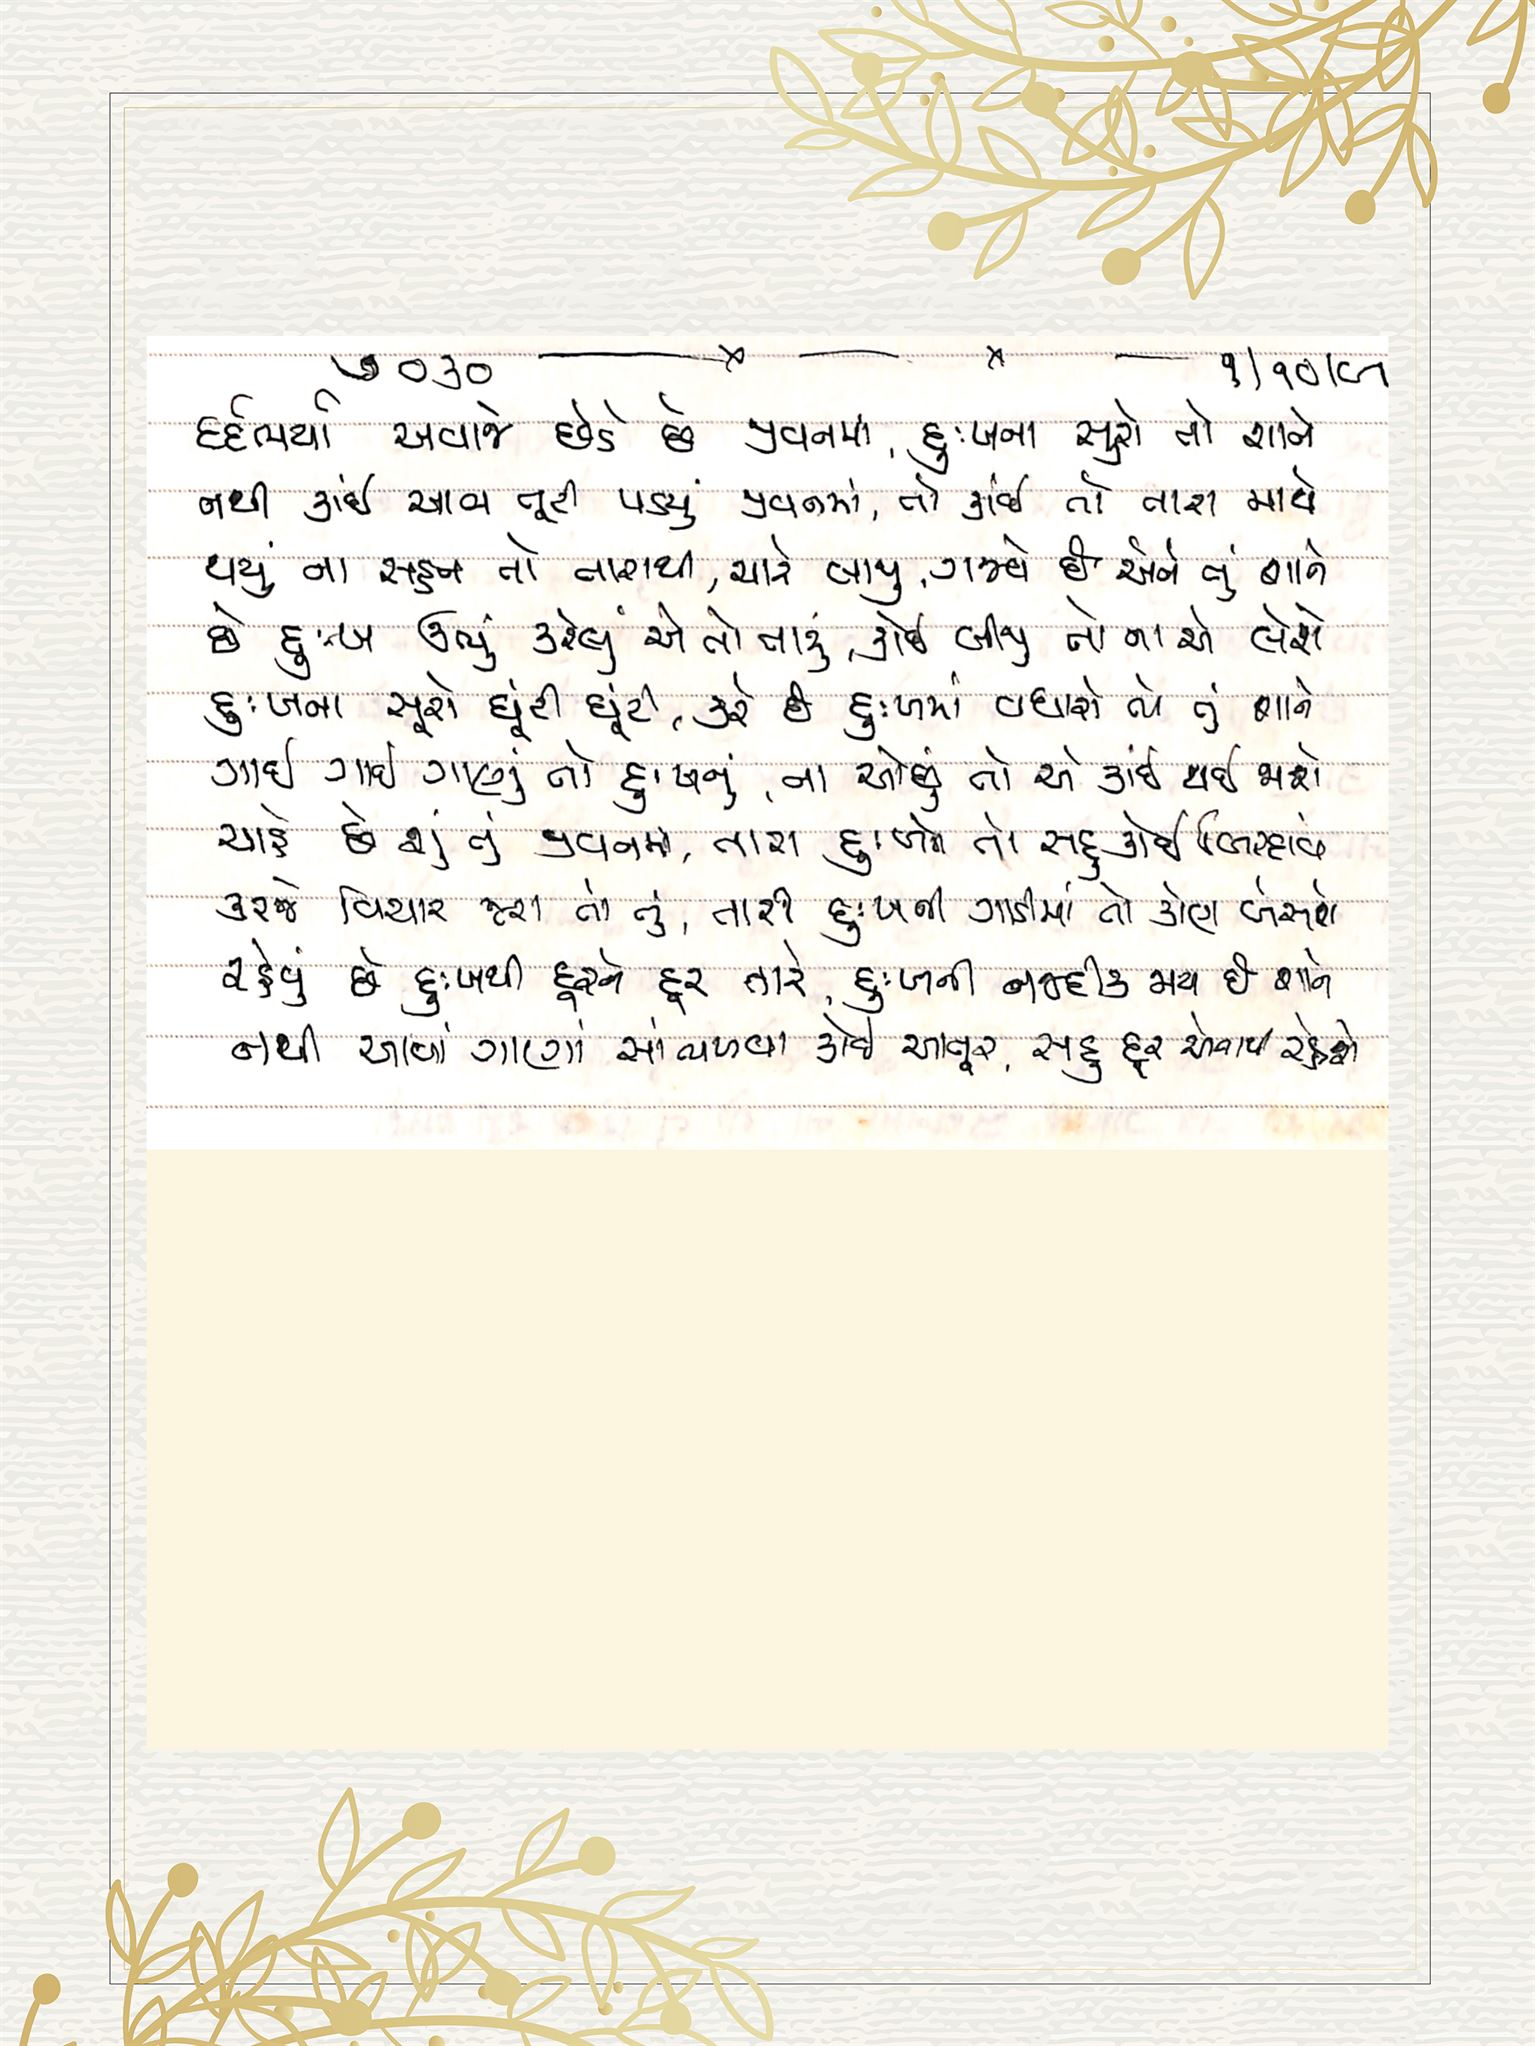 ૭૦૩૦ ૧/૧૦/૯૭
દર્દભર્યા અવાજે છેડે છે જીવનમાં, દુઃખના સુરો તો શાને
નથી કાંઈ આભ તૂટી પડયું જીવનમાં, તો કાંઈ તો તારા માથે
થયું ના સહન તો તારાથી, ચારે બાજુ, ગજવે છે એને તું શાને
છે દુઃખ ઊભું કરેલું એ તો તારું, કોઈ બીજું તો ના એ લેશે
દુઃખના સૂરો ઘૂંટી ઘૂંટી, કરે છે દુઃખમાં વધારો તો તું શાને
ગાઈ ગાઈ ગાણું તો દુઃખનું, ના ઓછું તો એ કાંઈ થઈ જાશે
ચાહે છે શું તું જીવનમાં, તારા દુઃખને તો સહુ કોઈ બિરદાવે
કરજે વિચાર જરા તો તું, તારી દુઃખની ગાડીમાં તો કોણ બેસશે
રહેવું છે દુઃખથી દૂરને દૂર તારે, દુઃખની નજદીક જાય છે શાને
નથી આવાં ગાણાં સાંભળવા કોઈ આતૂર, સહુ દૂર એનાથી રહેશે